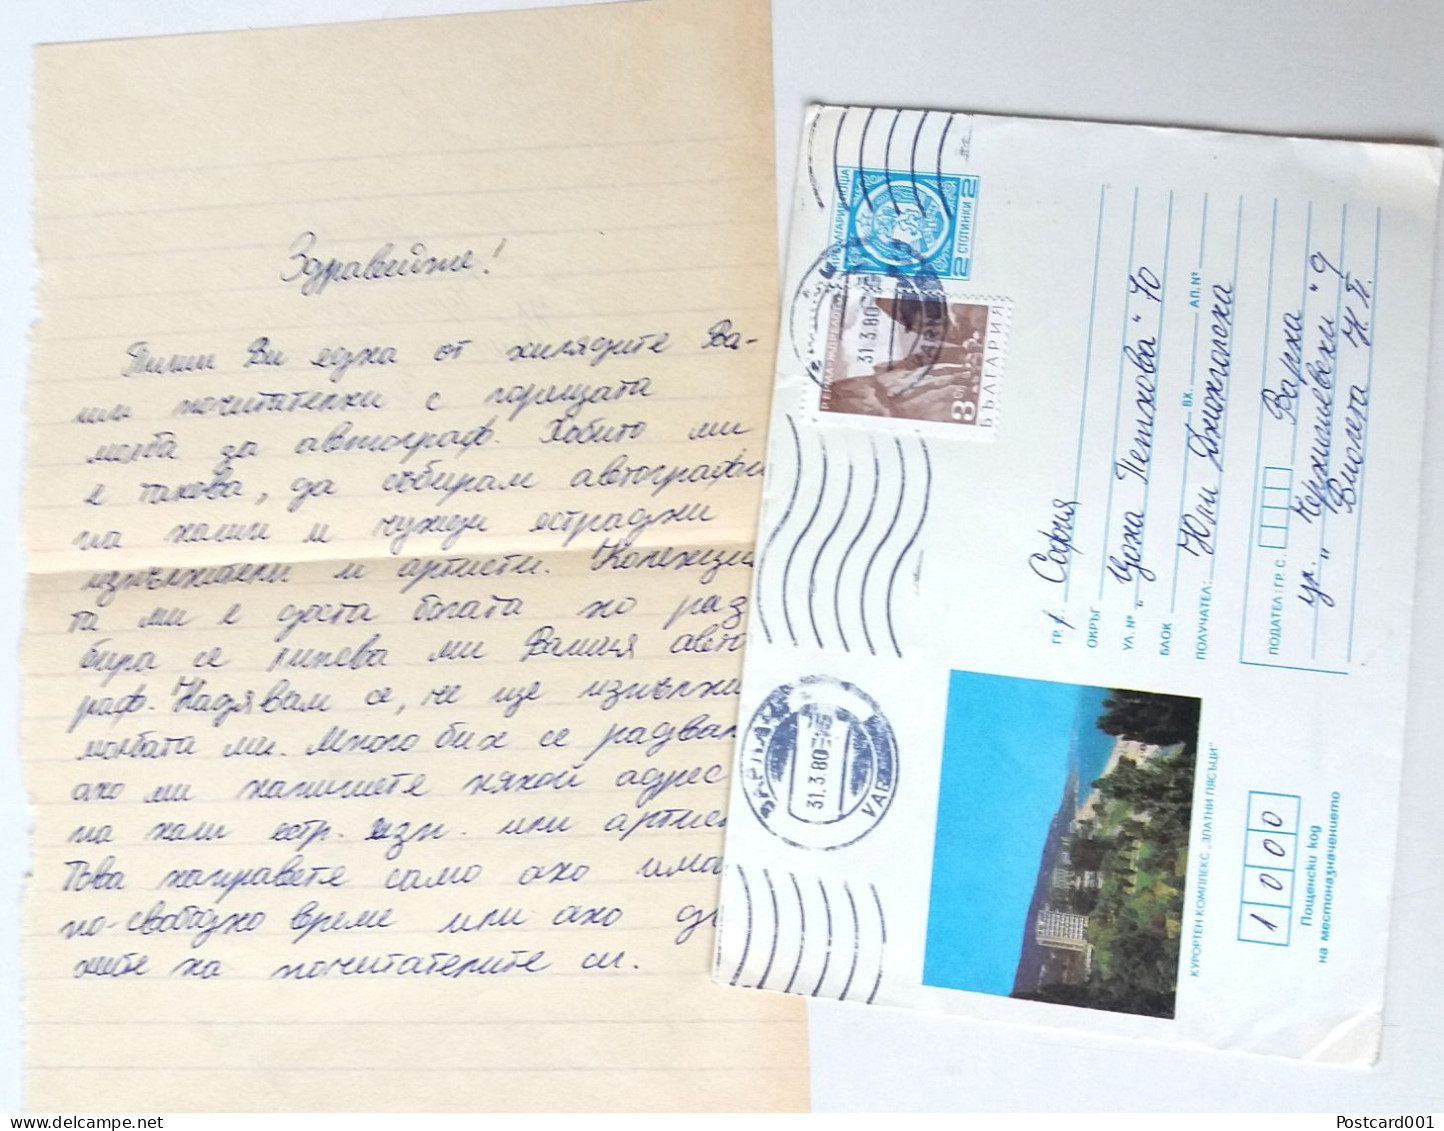 Здравейте!
Пиши Ви една от хилядите Ва-
ши почитателки с горещата
молба за автограф. Хобито ми
е такова, да събирам автографи
на наши и чужди естрадни
изпълнители и артисти. Колекция
та ми е доста богата но раз
бира се липсва ми Вашия авто
граф. Надявам се, че ще изпълни
молбата ми. Много бих се радвал
ако ми напишете някой адрес
на наш естр. изп. или артист
Това направете само ако има
по-свободно време или ако д
жите на почитателите си.
НР БЪЛГАРИЯ ПОЩА
2 СТОТИНКИ 2
БЪЛГАРИЯ
3
31.3.80
VARNA
ВАРНА
31.3.80
VARNA
ГР. София
ОКРЪГ
УЛ. № "Цона Пенкова" 10
БЛОК ВХ. АП. №
ПОЛУЧАТЕЛ: Юли
ПОДАТЕЛ: ГР. С. Варна
ул. "Чернишевски" 9
Виолета Н. П.
КУРОРТЕН КОМПЛЕКС „ЗЛАТНИ ПЯСЪЦИ"
1000
Пощенски код
на местоназначението
Postcard001